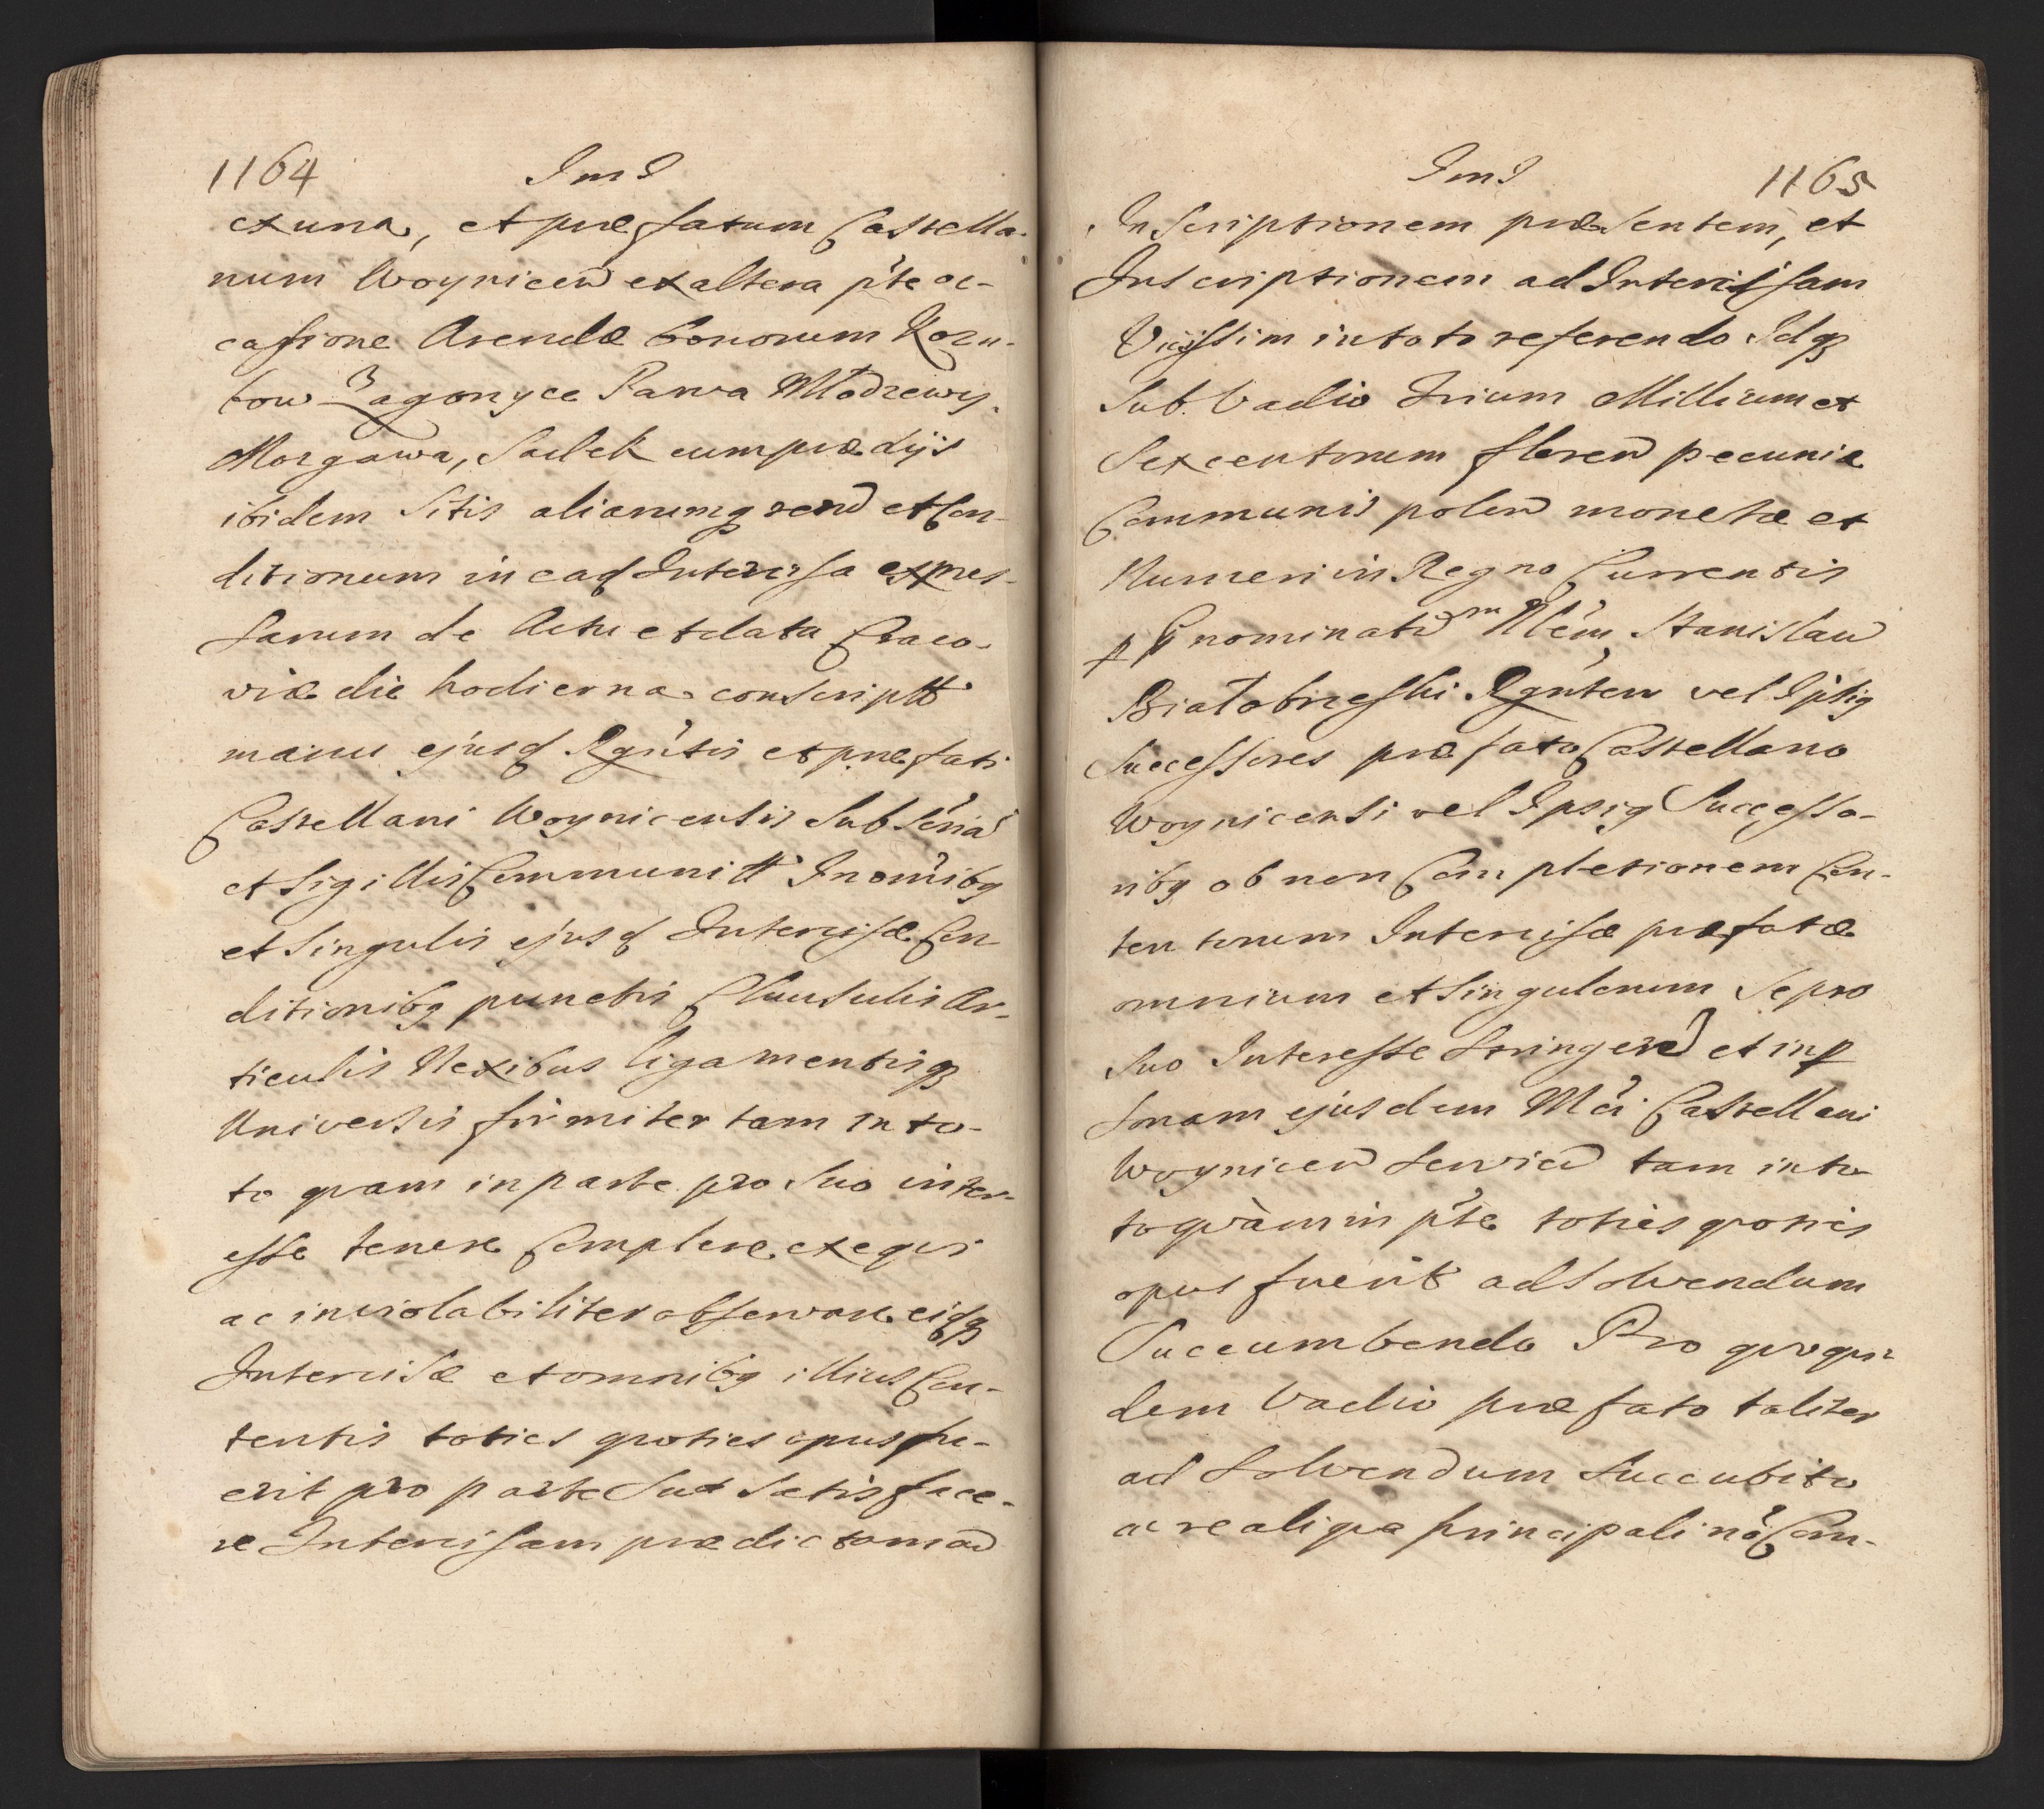 1164 Jmd
ex una, et præfatum Castella-
num Woynicen ex altera p̃te oc-
casione Arendæ bonorum Kozu-
bow Zagonyce Parva Młodzewy,
Morgawa, Sadek cum prædijs
ibidem Sitis aliarumq rerũ et Con-
ditionum in eadq Intercisa expres-
sarum de Actu et data Craco-
viæ die hodierna conscriptt
manu ejusd Rgñtis et præfati
Castellani Woynicensis Subscria
et Sigillis Communitt In omĩbq
et Singulis ejusd Intercisæ Con-
ditionibq punctis Clausulis Ar-
ticulis Nexibus ligamentisq
Universis firmiter tam in to-
to quam in parte pro Suo inter-
esse tenere Complere exequi
ac inviolabiliter observare eidq
Intercisæ et omnibq illius Con-
tentis toties quoties opus fu-
erit pro parte Sua Satisface-
re Intercisam prædictam ad
Jmd 1165
Inscriptionem præsentem, et
Inscriptionem ad Intercisam
Vicissim in toto referendo Idq
Sub Vadio trium Millium et
Sexcentorum floren pecuniæ
Communis polen monetæ et
Numeri in Regno Currentis
p nominatũ m Stanislaũ
Białobrzeski Rgñtem vel Ipsiq
Successores præfato Castellano
Woynicensi vel Ipsiq Successo-
ribq ob non Completionem Con-
tentorum Intercisæ præfatæ
omnium et Singulorum Se pro
Suo Interesse stringend et in p
sonam ejusdem Mci Castellani
Woynicen servien tam in to-
to quàm in p̃te toties quoties
opus fuerit ad Solvendum
Succumbendo Pro quo qui-
dem Vadio præfato taliter
ad Solvendum Succubito
ac re aliqua principali nõ Com-